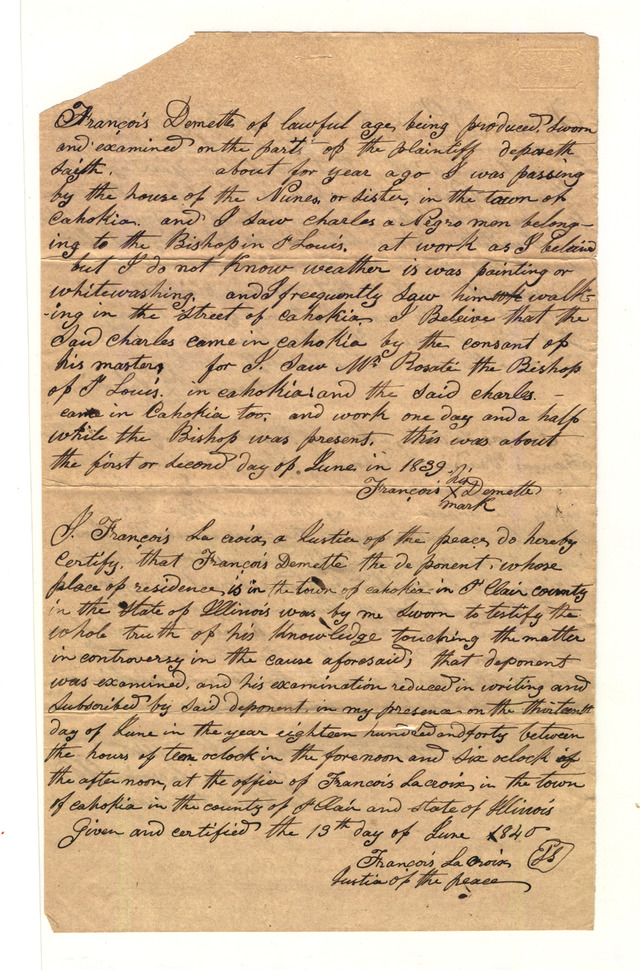 François Demette of lawful age, being produced. Sworn
and examined on the part of the plaintiff deposeth
saith. about for year ago I was passing
by the house of the Nunes, or Sister, in the town of
Cahokia. and I saw charles a Negro men belong-
ing to the Bishop in St Louis. at work as I beleive
but I do not Know weather is was painting or
whitewashing. and I freequently Saw him walk-
-ing in the Street of Cahokia I Beleive that the
Said charles came in cahokia by the consant of
his master, for I. Saw Mr Rosate the Bishop
of St Louis. in cahokia and the said charles.
came in Cahokia too. and work one day and a half
while the Bishop was present. this was about
the first or second day of June in 1839.
his
François X Demette
mark
I. François La croix, a Justia of the peace, do hereby
Certify. that François Demette the deponent, whose
place of residence is in the town of cahokia in St Clair county
in the State of Illinois was by me Sworn to testify the
whole truth of his Knowledge touching the matter
in controversy in the cause aforesaid; that deponent
was examined, and his examination reduced in writing and
Subscribed by said deponent, in my presence on the thirteenth
day of June in the year eighteen hundred and forty between
the hours of ten oclock in the forenoon and six oclock of
the after noon, at the office of Francois Lacroix, in the town
of cahokia in the county of St Clair and state of Illinois
Given and certified the 13th day of June 1840
François La Croix
Justia of the peace